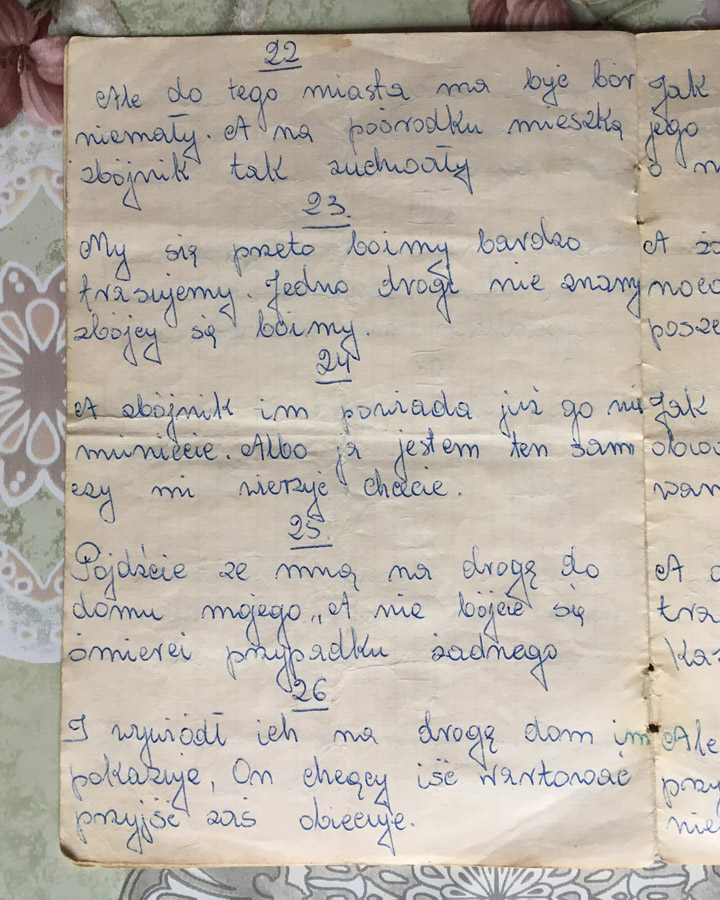 22
Ale do tego miasta ma być bór
niemały. A na pośrodku mieszka
zbójnik tak zuchwały
23.
My się przeto boimy bardzo
trzsujemy. Jedno drogi nie znamy
zbójcy się boimy.
24
A zbójnik im powiada już go nie
muniecie. Albo ja jestem ten sam
czy mi wierzyć chcecie.
25.
Pójdźcie ze mną na drogę do
domu mojego,, A nie bójcie się
śmierci przypadku żadnego
26.
I wywiódł ich na drogę dom im
pokazuje, On chcący iść wartować
przyjść zaś obiecuje.
Jak
jego
o
A
poszę
Jak
A
Ale
nie